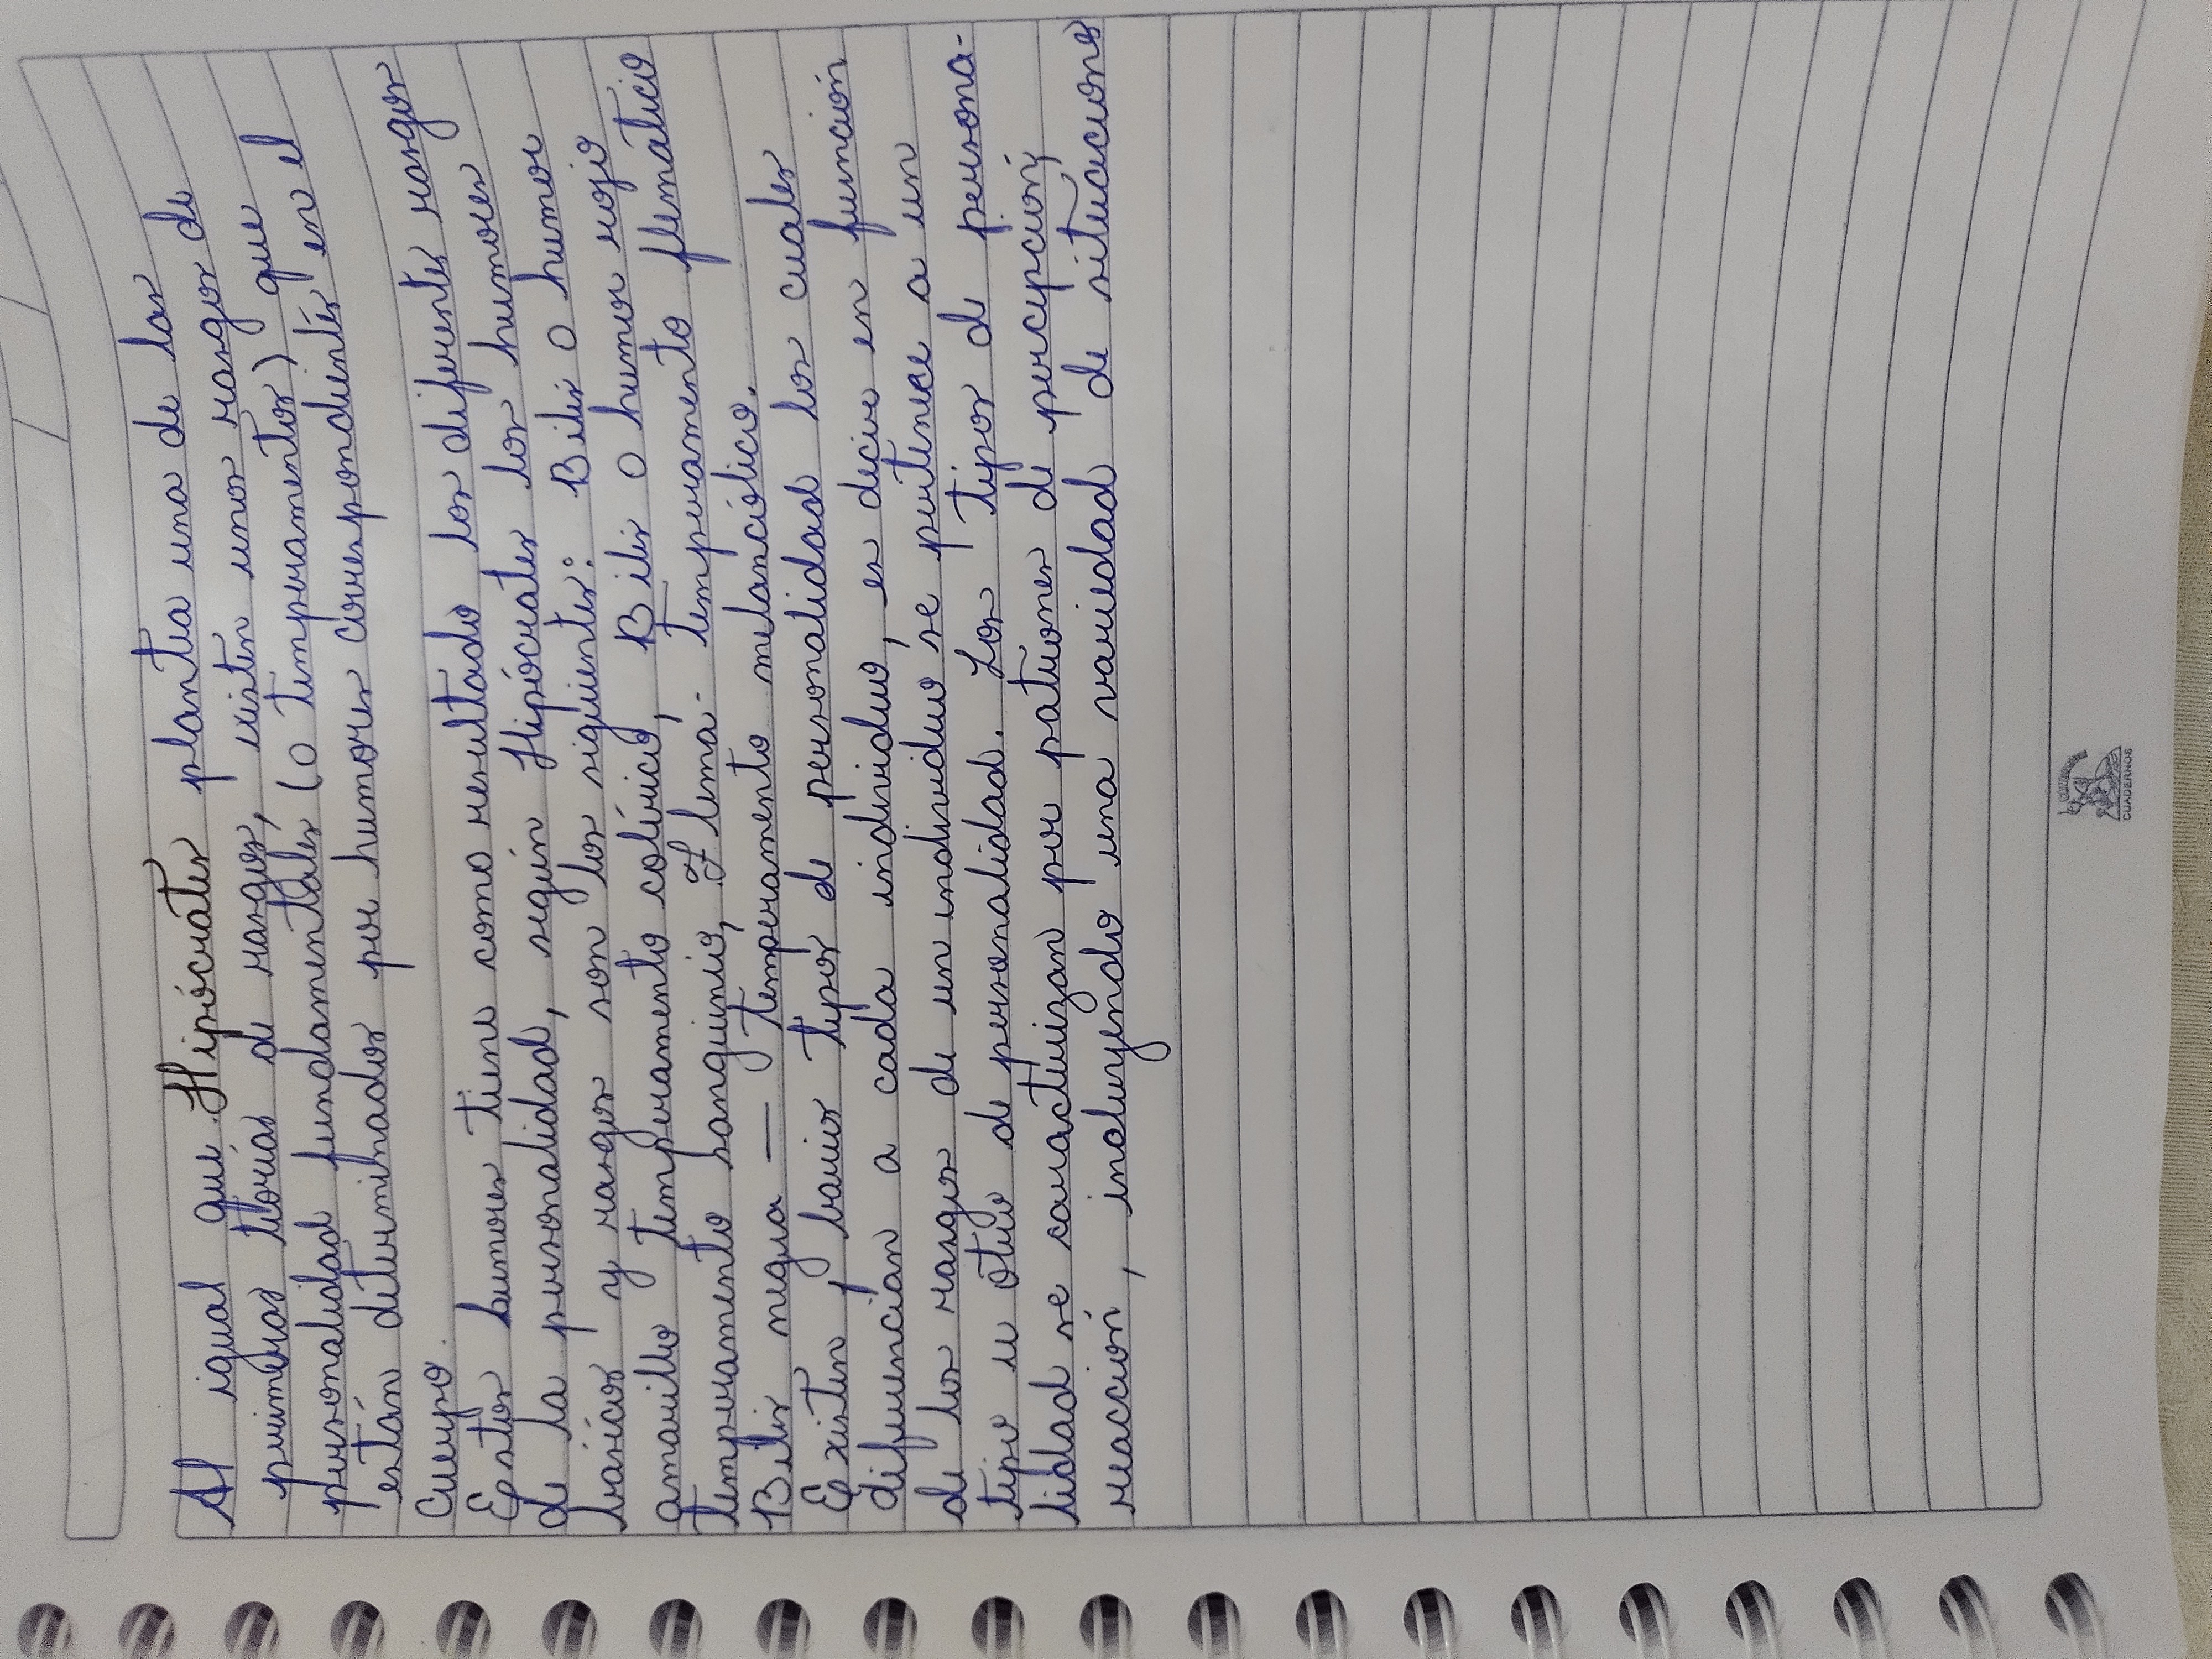 Al igual que Hipócrates plantea una de las
primeras teorías de rasgos, existen unos rasgos de
personalidad fundamentales (o temperamentos) que
están determinados por humores correspondientes en el
cuerpo.
Estos humores tiene como resultado los diferentes rasgos
de la personalidad, según Hipócrates los humores
básicos y rasgos son los siguientes: Bilis o humor
amarillo temperamento colérico, Bilis o humor rojo
temperamento sanguinio, Flema - temperamento flemático
Bilis negra — temperamento melancólico.
Existen barios tipos de personalidad los cuales
diferencian a cada individuo, es decir en función
de los rasgos de un individuo se pertenece a un
tipo u otro de personalidad. Los tipos de persona-
lidad se caracterizan por patrones de percepción,
reacción, incluyendo una variedad de situaciones
CUADERNOS